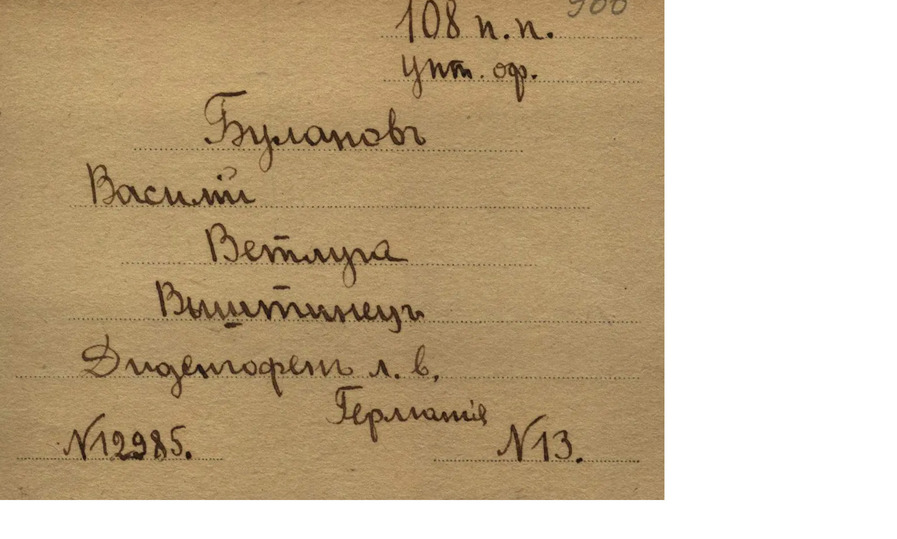 108 п.п.
Унт. оф.
Булановъ
Василій
Ветлуга
Выштинецъ
Диденгофен л. в.
Германія
N12985.
N13.